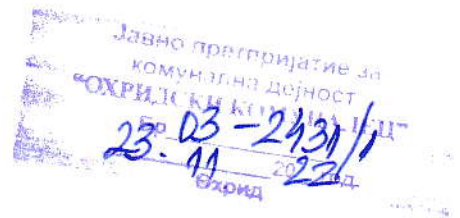 Јавно претпријатие за
комунална дејност
“ОХРИДСКИ КОМУНАЛЕЦ”
Бр. 03-2431/1
23.11 2022 год.
Охрид